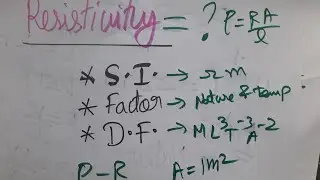 Resistivity = ? ρ = RA/l
* S.I. → Ωm
* Factor → Nature & temp
* D.F. → ML³T⁻³A⁻²
ρ – R A = 1m²